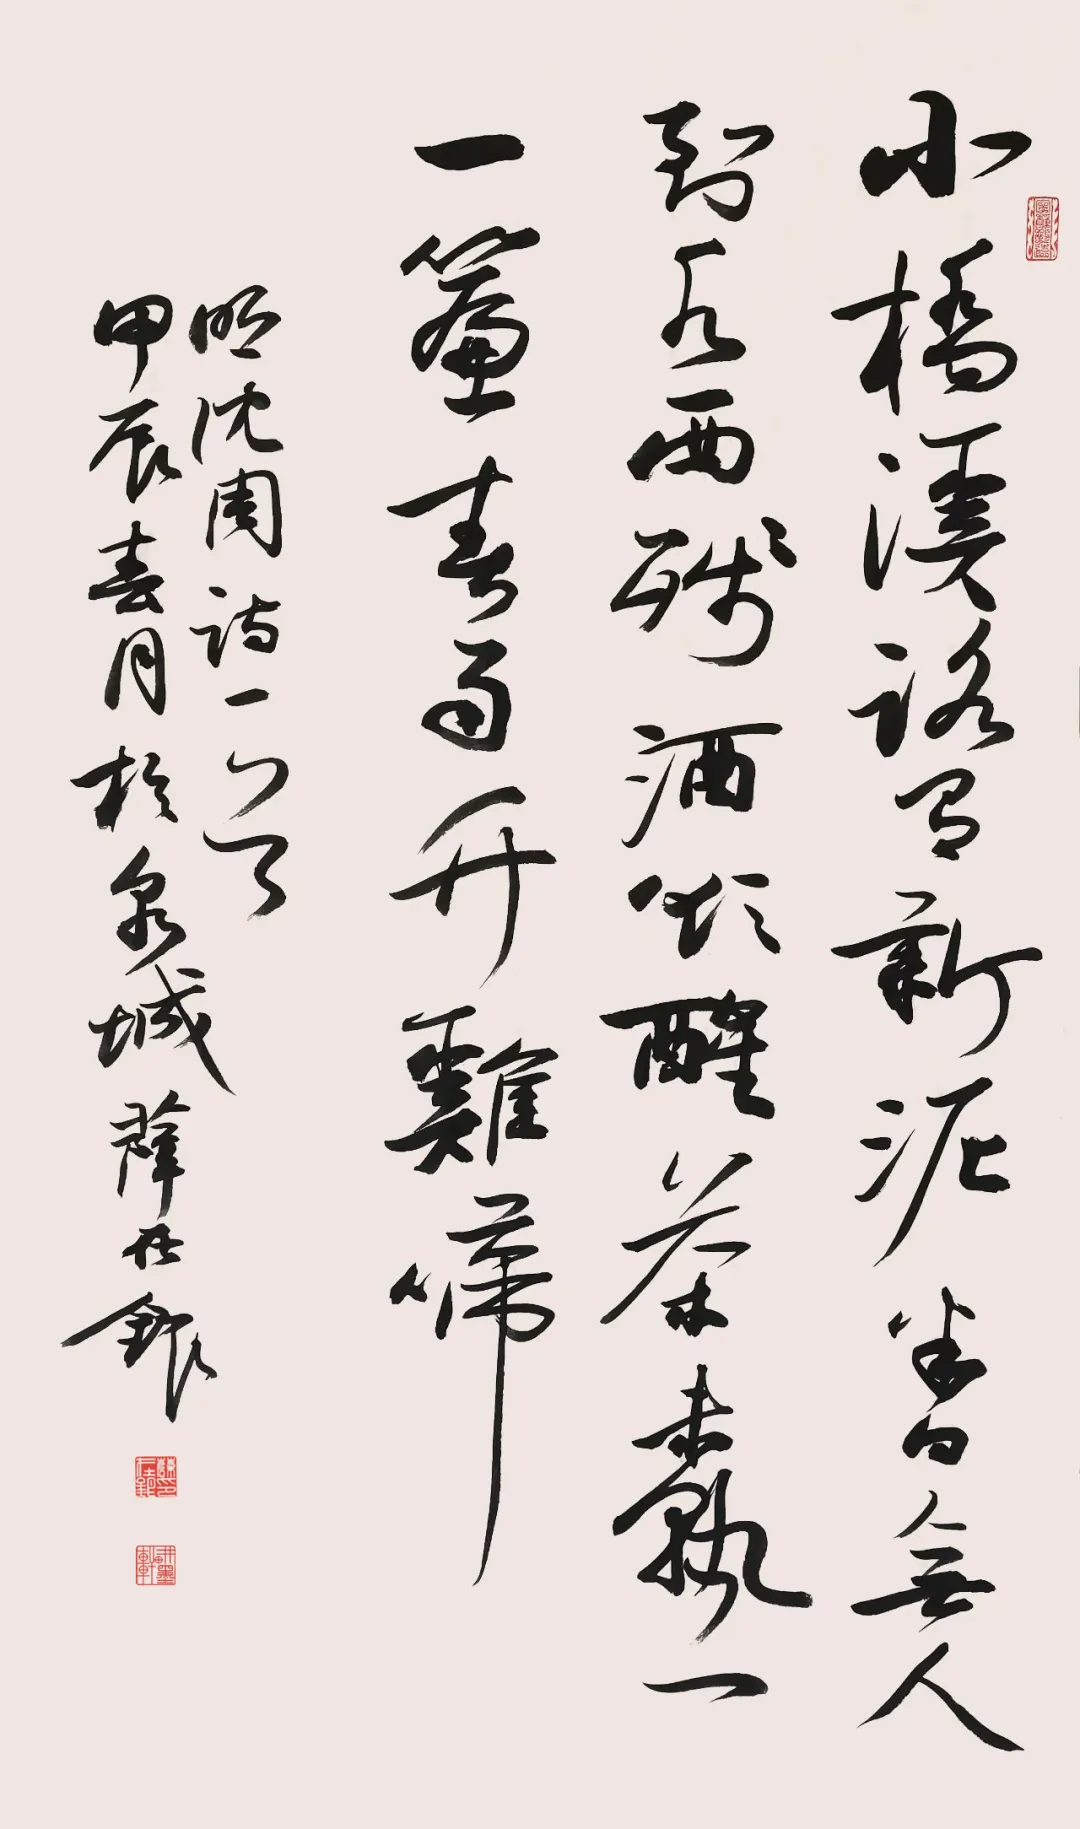 小橋溪路有新泥半日無人
到水西殘酒欲醒茶未熟一
一簾春雨竹雞啼
明沈周詩一首
甲辰春月於泉城薛在銀